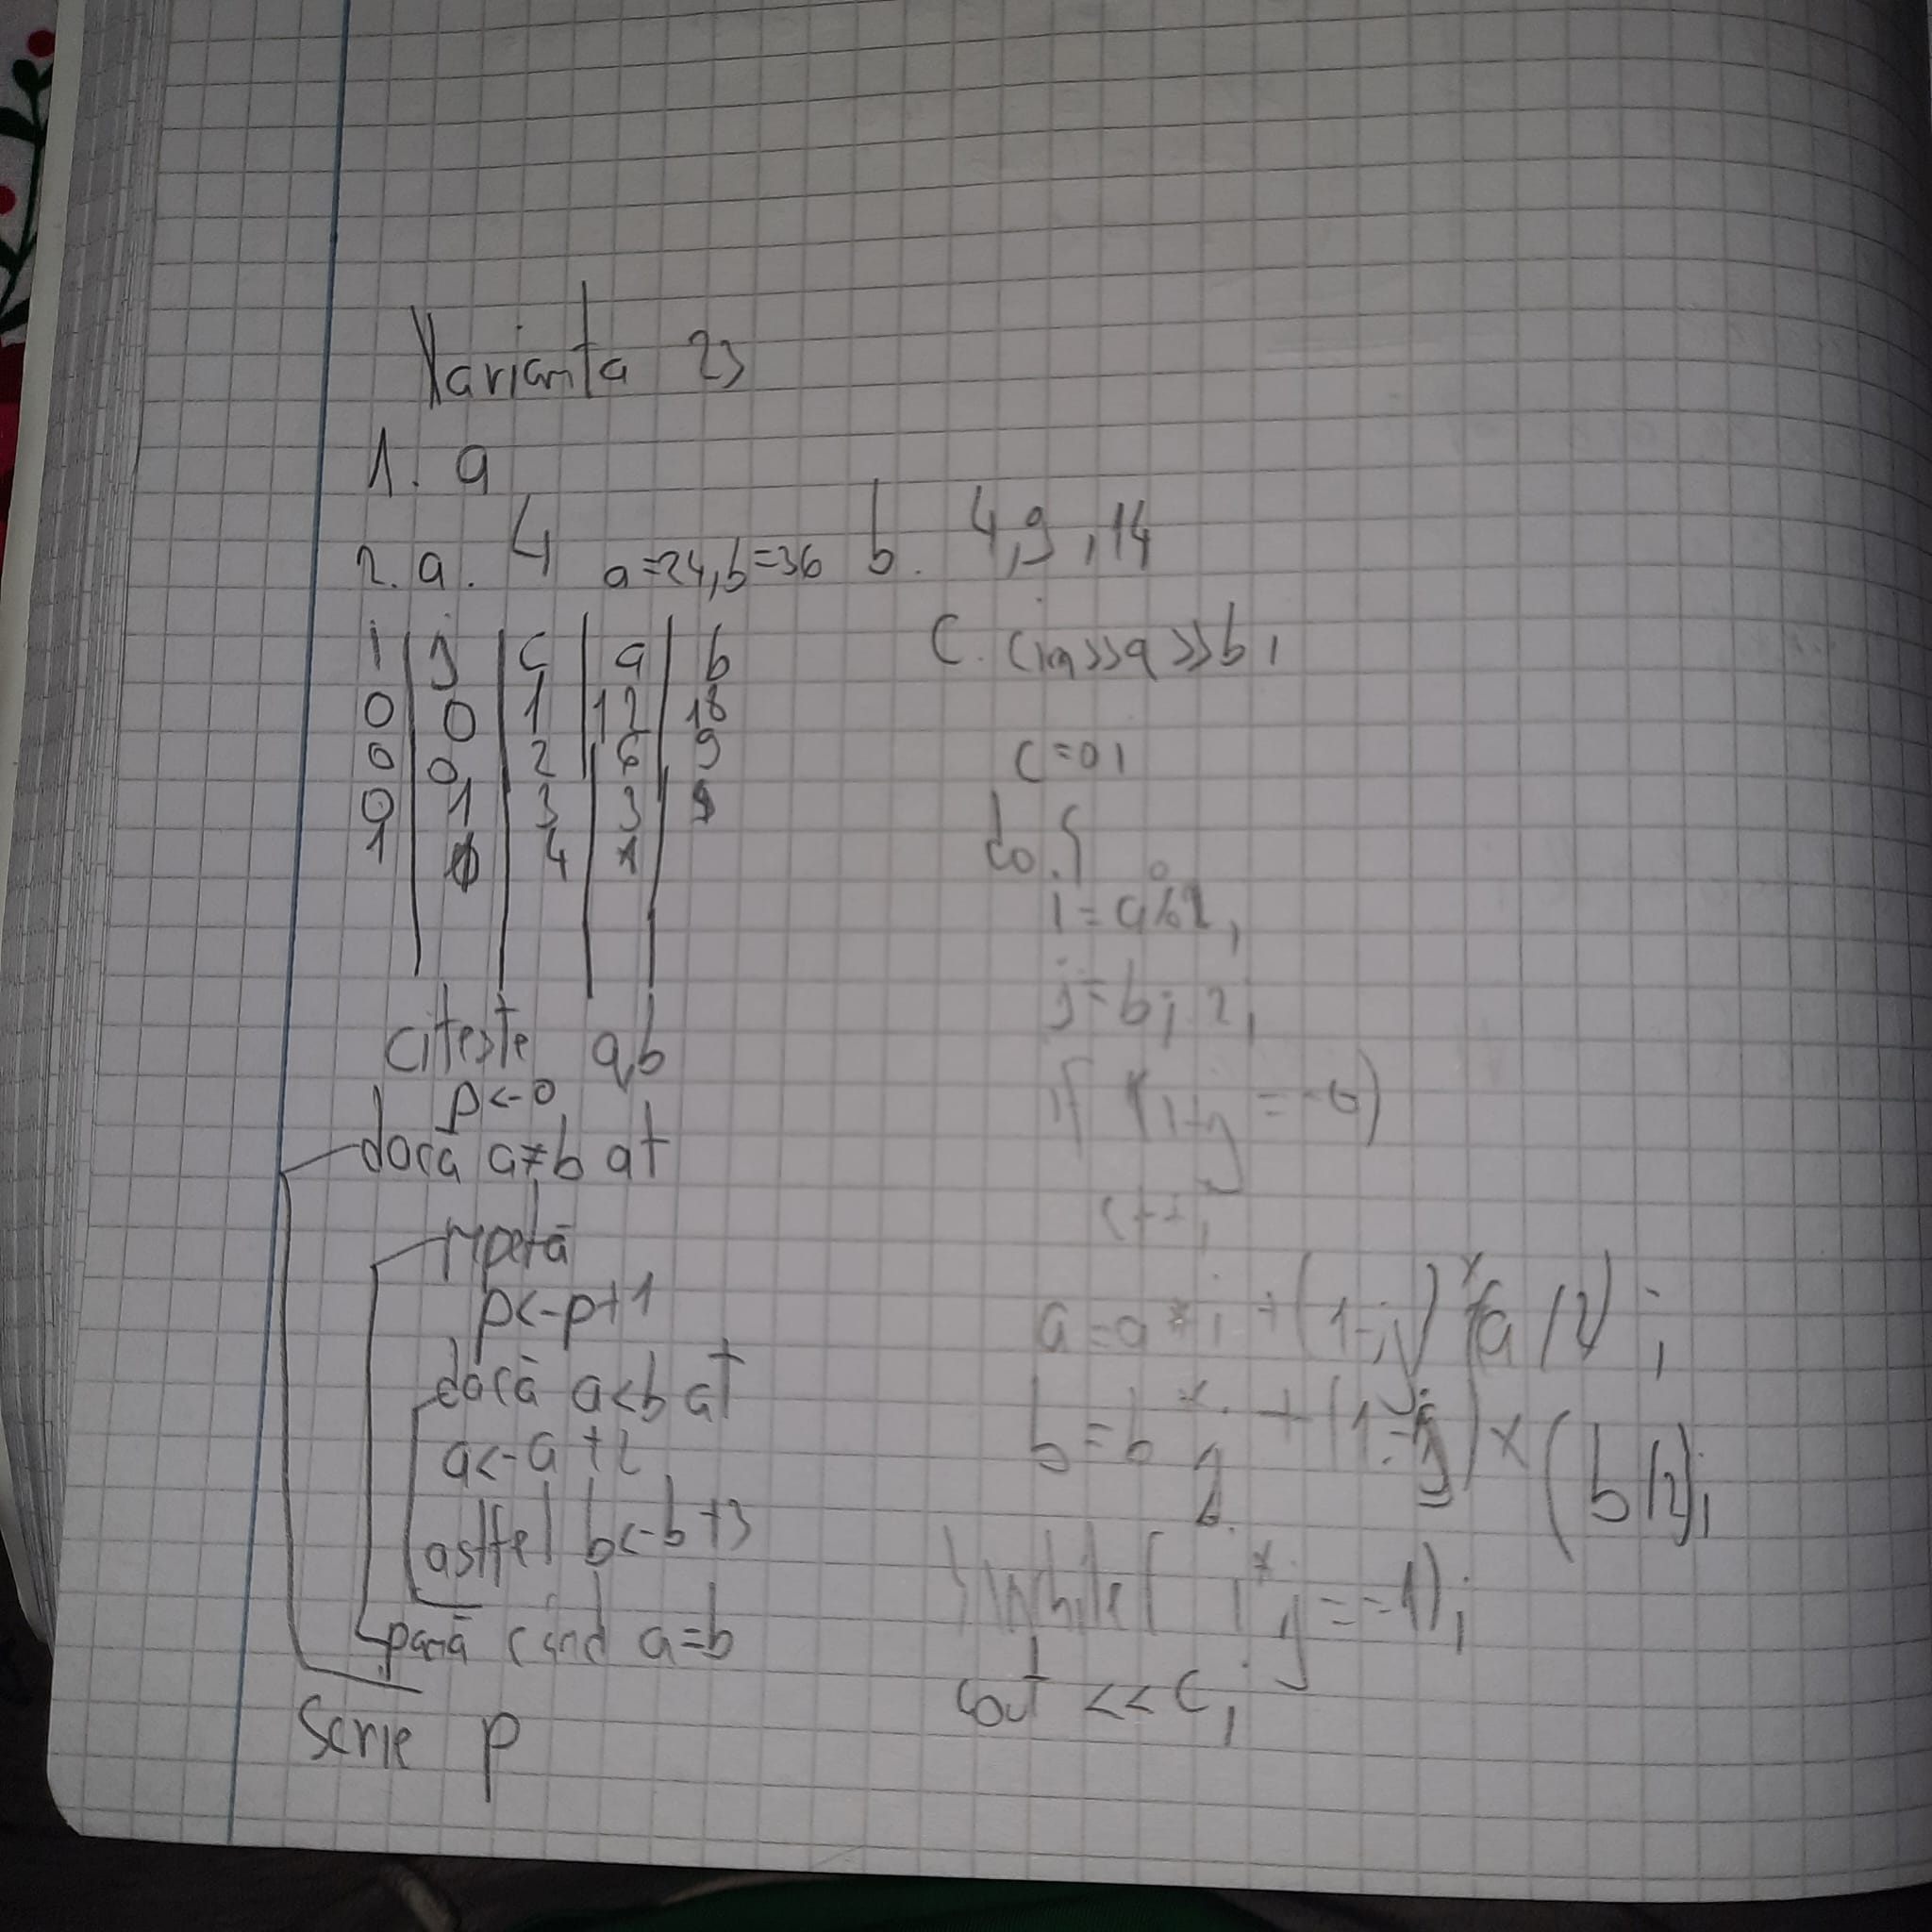 Varianta 23
1. a
2. a. 4 a=24, b=36 b. 4, 9, 14
i | j | c | a | b
0 | 0 | 1 | 12 | 18
0 | 0 | 2 | 6 | 9
0 | 1 | 3 | 3 | 9
1 | 4
citeste a,b
p<-0
dacă a≠b at
repetă
p<-p+1
dacă a<b at
a<-a+2
astfel b<-b+3
până când a=b
Scrie p
c. cin>>a>>b;
c=0;
do {
i=a%2;
j=b%2;
if (i+j==0)
c++;
a=a*i+(1-i)*(a/2);
b=b*j+(1-j)*(b/2);
}while(i*j==1);
cout <<c;